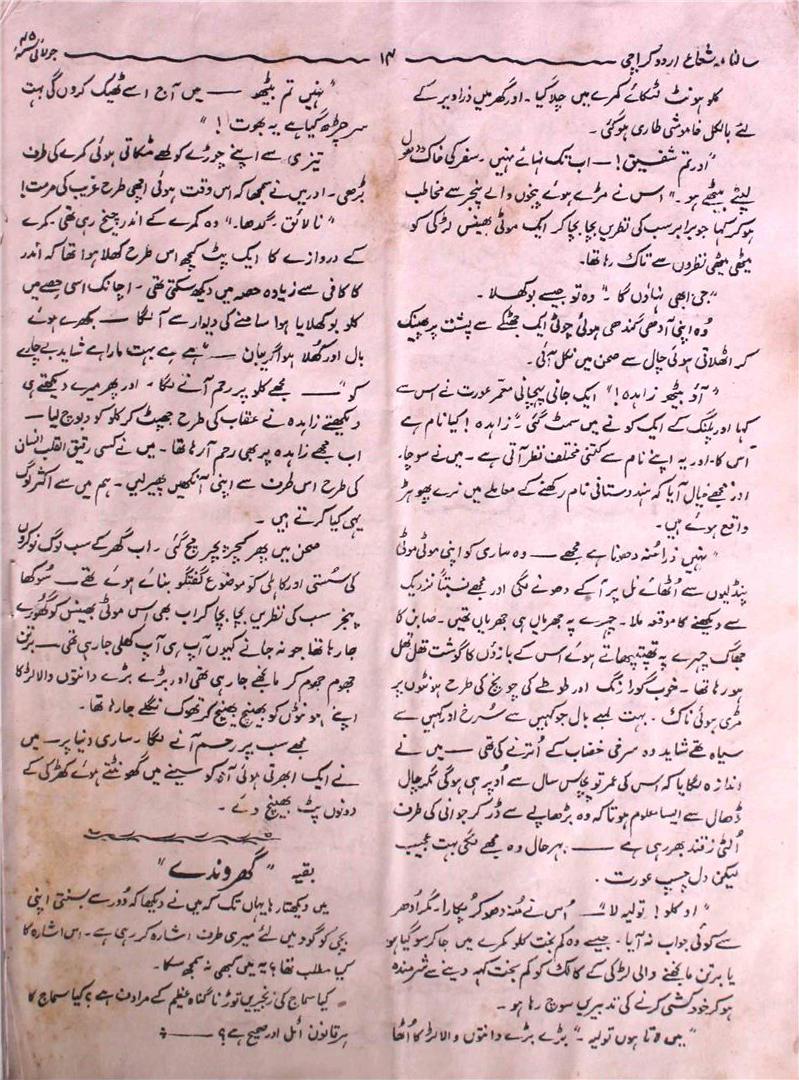 سالنامہ شعاع اردو کراچی
۱۴
جولائی ۴۵ء
کلو ہونٹ لٹکائے کمرے میں چلا گیا۔ اور گھر میں ذرا دیر کے
لئے بالکل خاموشی طاری ہوگئی۔
"اور تم شفیق! — اب تک نہائے نہیں۔ سفر کی خاک دھول
لپیٹے بیٹھے ہو۔" اس نے مڑے ہوئے پنجوں والے پنجر سے مخاطب
ہوکر کہا جو برابر سب کی نظریں بچا بچا کر ایک موٹی بھینس لڑکی کو
میٹھی میٹھی نظروں سے تاک رہا تھا۔
"جی ابھی نہاؤں گا۔" وہ تو جیسے بوکھلا۔
وہ اپنی آدھی گندھی ہوئی چوٹی ایک جھٹکے سے پشت پر پھینک
کر اٹھلاتی ہوئی چال سے صحن میں نکل آئی۔
"آؤ بیٹھو زاہدہ!" ایک جانی پہچانی معمر عورت نے اس سے
کہا اور پلنگ کے ایک کونے میں سمٹ گئی۔ "زاہدہ! کیا نام ہے
اس کا۔ اور یہ اپنے نام سے کتنی مختلف نظر آتی ہے۔ میں نے سوچا۔
اور مجھے خیال آیا کہ ہندوستانی نام رکھنے کے معاملے میں نرے پھوہڑ
واقع ہوئے ہیں۔
"نہیں ذرا منہ دھونا ہے مجھے — وہ ساری کو اپنی موٹی موٹی
پنڈلیوں سے اُٹھائے نل پر آکے دھونے لگی اور مجھے نسبتاً نزدیک
سے دیکھنے کا موقعہ ملا۔ چہرے پہ جھریاں ہی جھریاں تھیں۔ صابن کا
جھاگ چہرے پہ تھپتھپاتے ہوئے اس کے بازوؤں کا گوشت تھل تھل
ہو رہا تھا۔ خوب گورا رنگ اور طوطے کی چونچ کی طرح ہونٹوں پر
مڑی ہوئی ناک۔ بہت لمبے بال جو کہیں سے سُرخ اور کہیں سے
سیاہ تھے شاید وہ سرخی خضاب کے اُترنے کی تھی — میں نے
اندازہ لگایا کہ اس کی عمر تو پچاس سال سے اُوپر ہی ہوگی مگر چال
ڈھال سے ایسا معلوم ہوتا کہ وہ بڑھاپے سے ڈر کر جوانی کی طرف
اُلٹی زقند بھر رہی ہے — بہر حال وہ مجھے لگی بہت عجیب
لیکن دل چسپ عورت۔
"او کلو! تولیہ لا" — اُس نے منہ دھو کر پکارا۔ مگر اُدھر
سے کوئی جواب نہ آیا۔ جیسے وہ کم بخت کلو کمرے میں جا کر سو گیا ہو
یا برتن مانجھنے والی لڑکی کے کالک کو کم بخت کہہ دینے سے شرمندہ
ہوکر خودکشی کرنے کی تدبیریں سوچ رہا ہو۔
"میں لاتا ہوں تولیہ۔" بڑے بڑے دانتوں والا لڑکا اُٹھا
"نہیں تم بیٹھو — میں آج اسے ٹھیک کروں گی بہت
سر چڑھ گیا ہے یہ بھوت!"
تیزی سے اپنے چوڑے کولھے مٹکاتی ہوئی کمرے کی طرف
بڑھی۔ اور میں نے سمجھا کہ اس وقت ہوئی اچھی طرح غریب کی مرمت!
"نالائق۔ گدھا۔" وہ کمرے کے اندر چیخ رہی تھی۔ کمرے
کے دروازے کا ایک پٹ کچھ اس طرح کھلا ہوا تھا کہ اندر
کا کافی سے زیادہ حصہ میں دیکھ سکتی تھی۔ اچانک اسی حصے میں
کلو بوکھلایا ہوا سامنے کی دیوار سے آ لگا — بکھرے ہوئے
بال اور کُھلا ہوا گریبان — ہے ہے بہت مارا ہے شاید بے چارے
کو" — مجھے کلو پر رحم آنے لگا۔ اور پھر میرے دیکھتے ہی
دیکھتے زاہدہ نے عقاب کی طرح جھپٹ کر کلو کو دبوچ لیا —
اب مجھے زاہدہ پر بھی رحم آ رہا تھا۔ میں نے کسی رقیق القلب انسان
کی طرح اس طرف سے اپنی آنکھیں پھیر لیں۔ ہم میں سے اکثر لوگ
یہی کیا کرتے ہیں۔
صحن میں پھر کچر پچر مچ گئی۔ اب گھر کے سب لوگ نوکروں
کی سُستی اور کاہلی کو موضوع گفتگو بنائے ہوئے تھے — سُوکھا
پنجر سب کی نظریں بچا بچا کر اب بھی اس موٹی بھینس کو گھورے
جا رہا تھا جو نہ جانے کیوں آپ ہی آپ کھلی جا رہی تھی — برتن
جھوم جھوم کر مانجھے جا رہی تھی اور بڑے بڑے دانتوں والا لڑکا
اپنے ہونٹوں کو بھینچ بھینچ کر تھوک نگلے جا رہا تھا۔
مجھے سب پر رحم آنے لگا۔ ساری دنیا پر — میں
نے ایک ابھرتی ہوئی آہ کو سینے میں گھونٹتے ہوئے کھڑکی کے
دونوں پٹ بھینچ دئے۔
بقیہ "گھروندے"
میں دیکھتا رہا یہاں تک کہ میں نے دیکھا کہ دُور سے بسنتی اپنی
بچی کو گود میں لئے میری طرف اشارہ کر رہی ہے۔ اس اشارہ کا
کیا مطلب تھا؟ یہ میں کبھی نہ سمجھ سکا۔
کیا سماج کی زنجیریں توڑنا گناہ عظیم کے مرادف ہے؟ کیا سماج کا
ہر قانون اٹل اور صحیح ہے؟ —